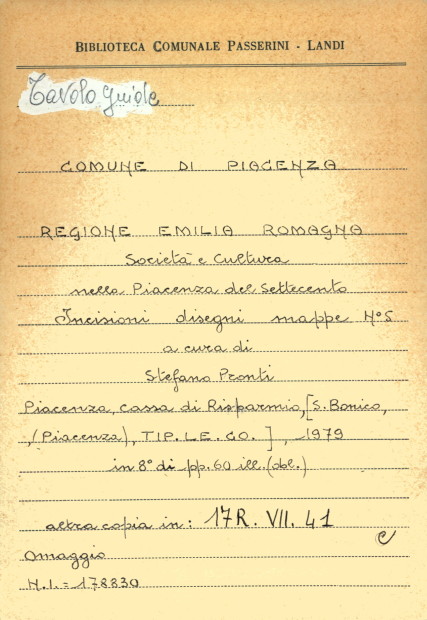 BIBLIOTECA COMUNALE PASSERINI - LANDI
Tavolo guide
COMUNE DI PIACENZA
REGIONE EMILIA ROMAGNA
Società e Cultura
nella Piacenza del Settecento
Incisioni disegni mappe N°5
a cura di
Stefano Pronti
Piacenza, Cassa di Risparmio, [S. Bonico,
(Piacenza), TIP.LE.CO.], 1979
in 8° di pp. 60 ill. (obl.)
altra copia in: 17R. VII. 41
e
Omaggio
N.I. = 178830